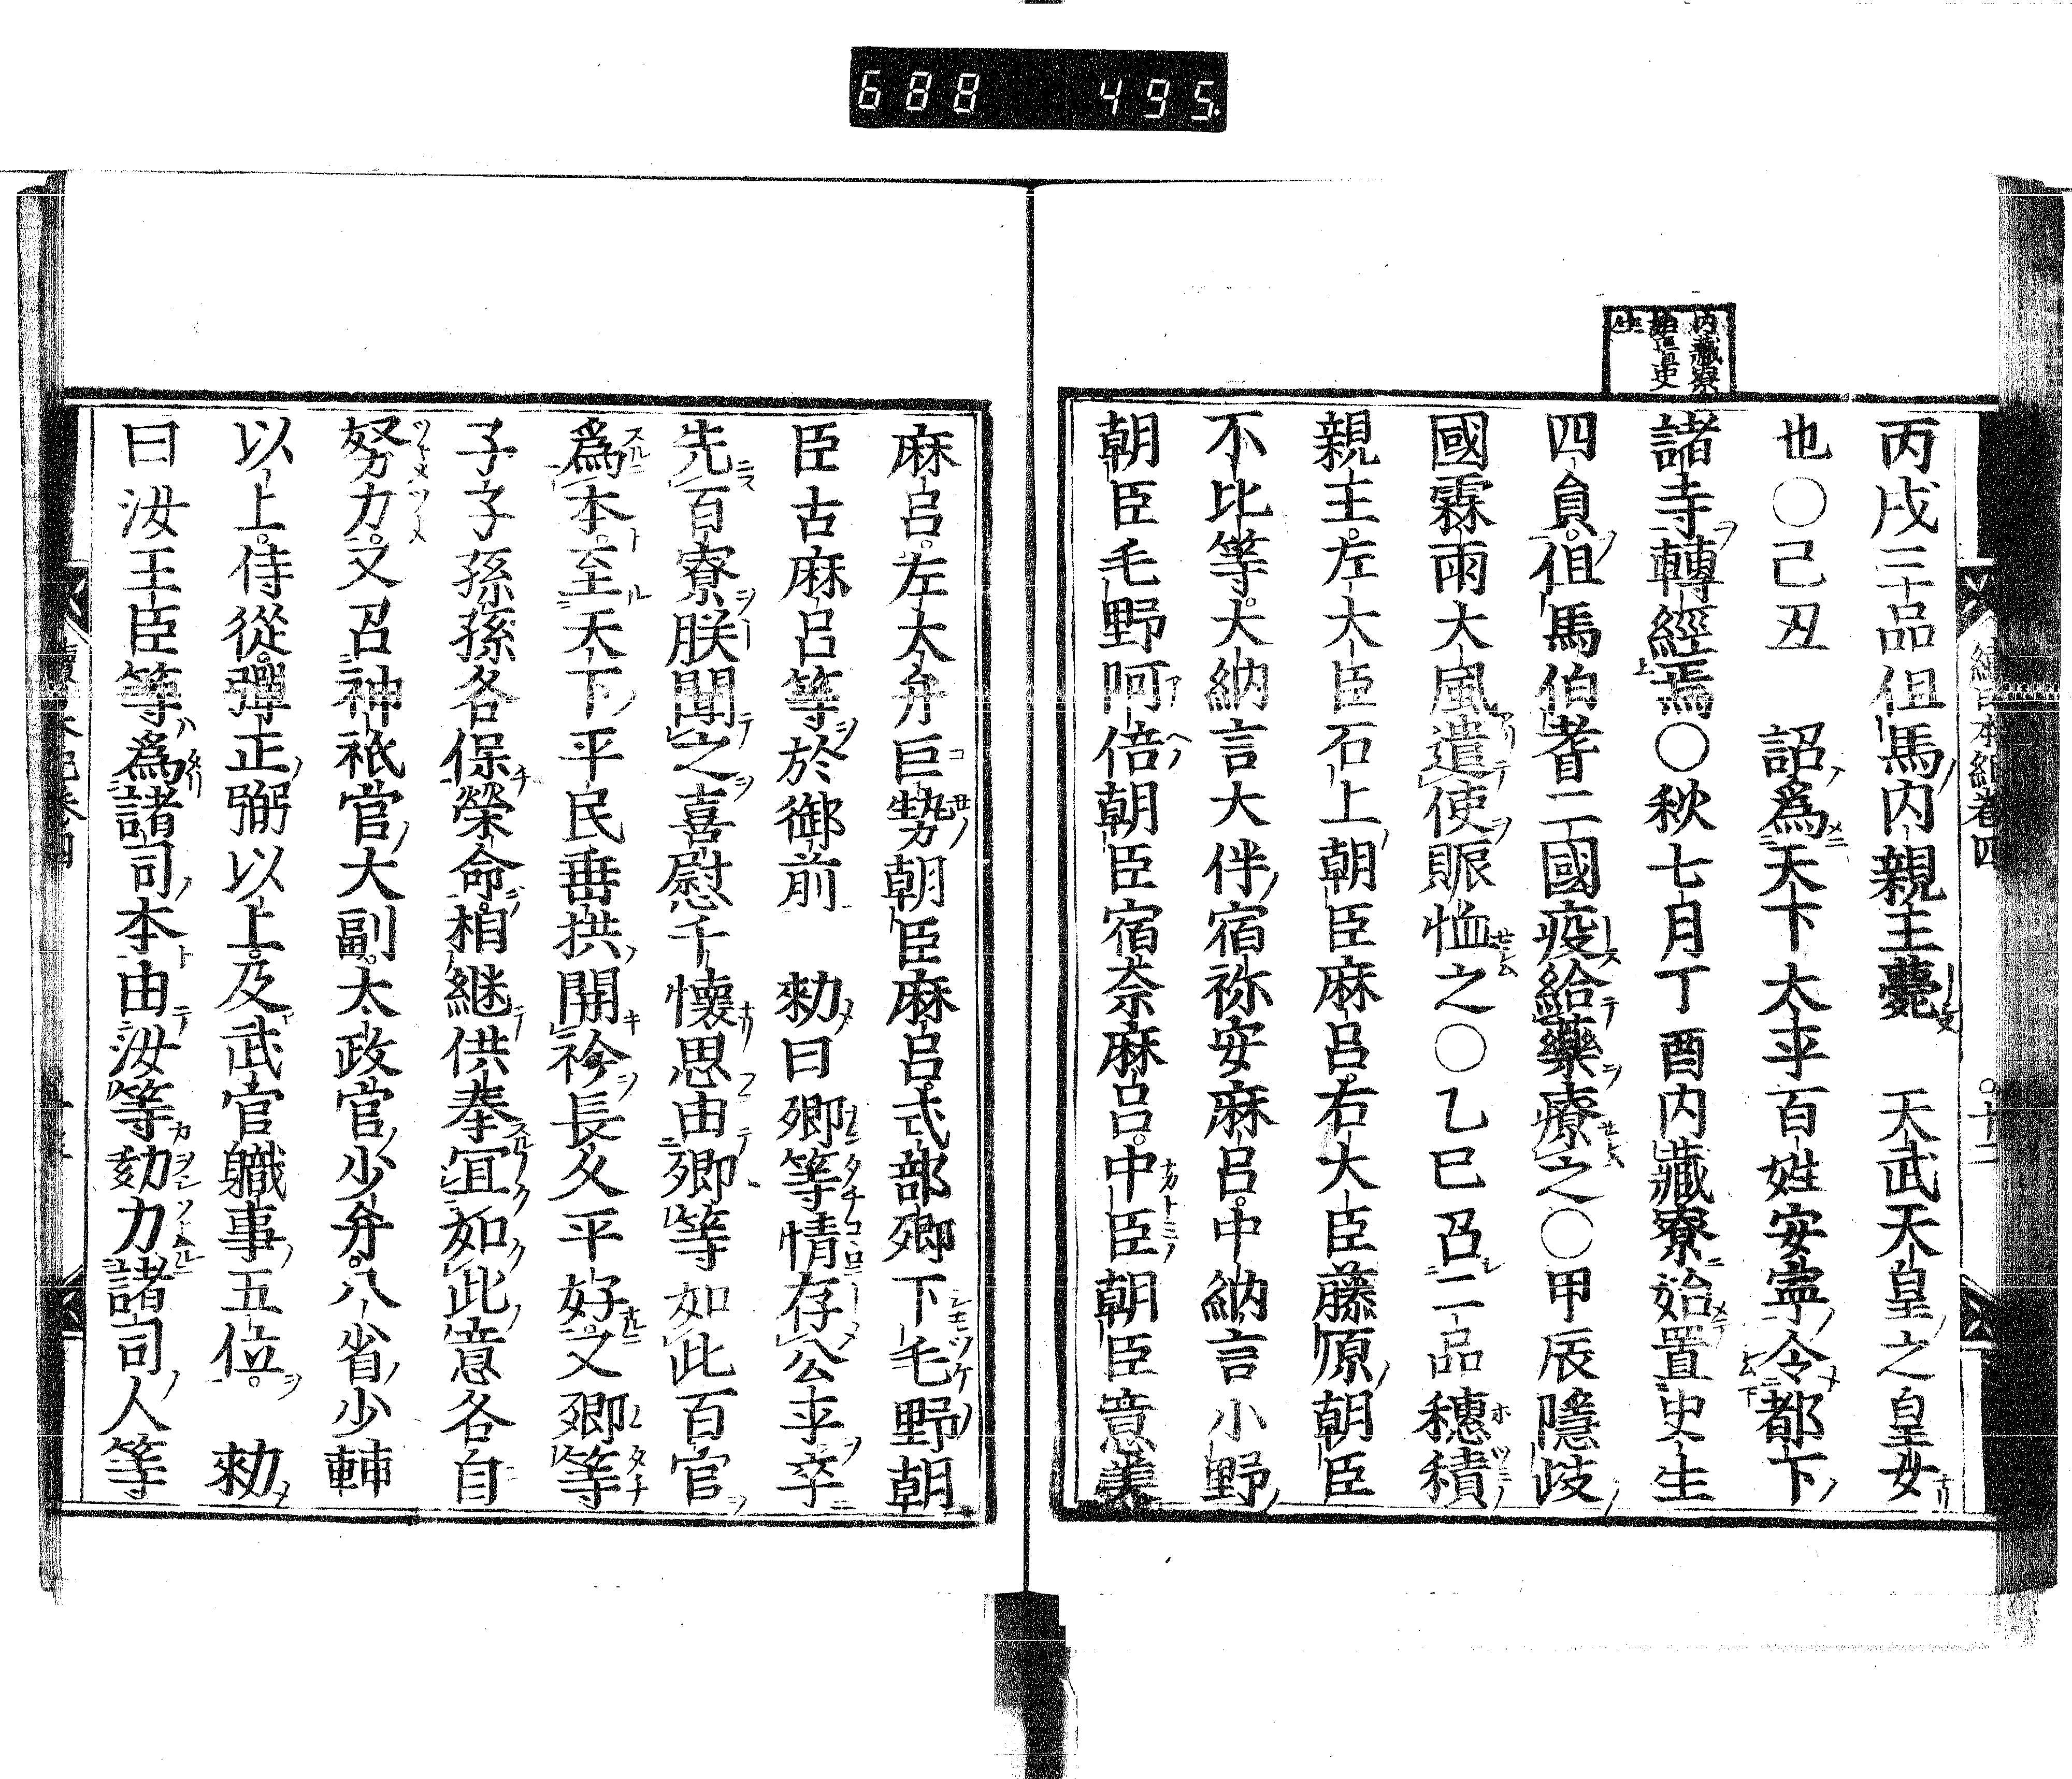 688 495.
續日本紀卷四 十二
内藏寮
始置史
生
丙戌三品但馬内親王薨 天武天皇之皇女
也〇己丑 詔爲天下太平百姓安寧令都下
諸寺轉經焉〇秋七月丁酉内藏寮始置史生
四員但馬伯耆二國疫給藥療之〇甲辰隱岐
國霖雨大風遣使賑恤之〇乙巳召二品穗積
親王左大臣石上朝臣麻呂右大臣藤原朝臣
不比等大納言大伴宿祢安麻呂中納言小野
朝臣毛野阿倍朝臣宿奈麻呂中臣朝臣意美
麻呂左大弁巨勢朝臣麻呂式部卿下毛野朝
臣古麻呂等於御前 勑曰卿等情存公平卒
先百寮朕聞之喜慰千懷思由卿等如此百官
爲本至天下平民垂拱開衿長久平好又卿等
子子孫孫各保榮命相継供奉宜如此意各自
努力又召神祇官大副太政官少弁八省少輔
以上侍從彈正弼以上及武官職事五位 勑
曰汝王臣等爲諸司本由汝等勎力諸司人等